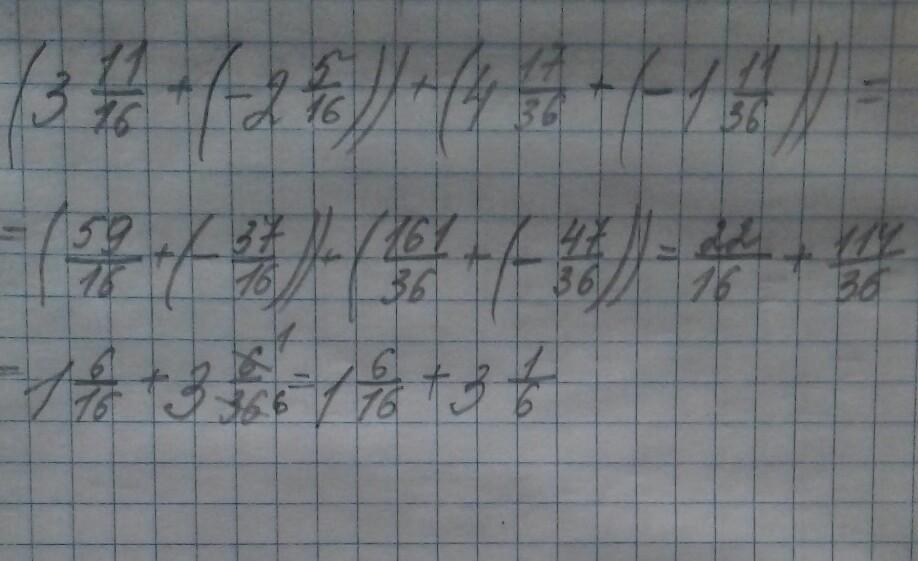 (3 11/16 + (-2 5/16)) + (4 17/36 + (-1 11/36)) =
= (59/16 + (-37/16)) + (161/36 + (-47/36)) = 22/16 + 114/36
= 1 6/16 + 3 6/36 1 6 = 1 6/16 + 3 1/6